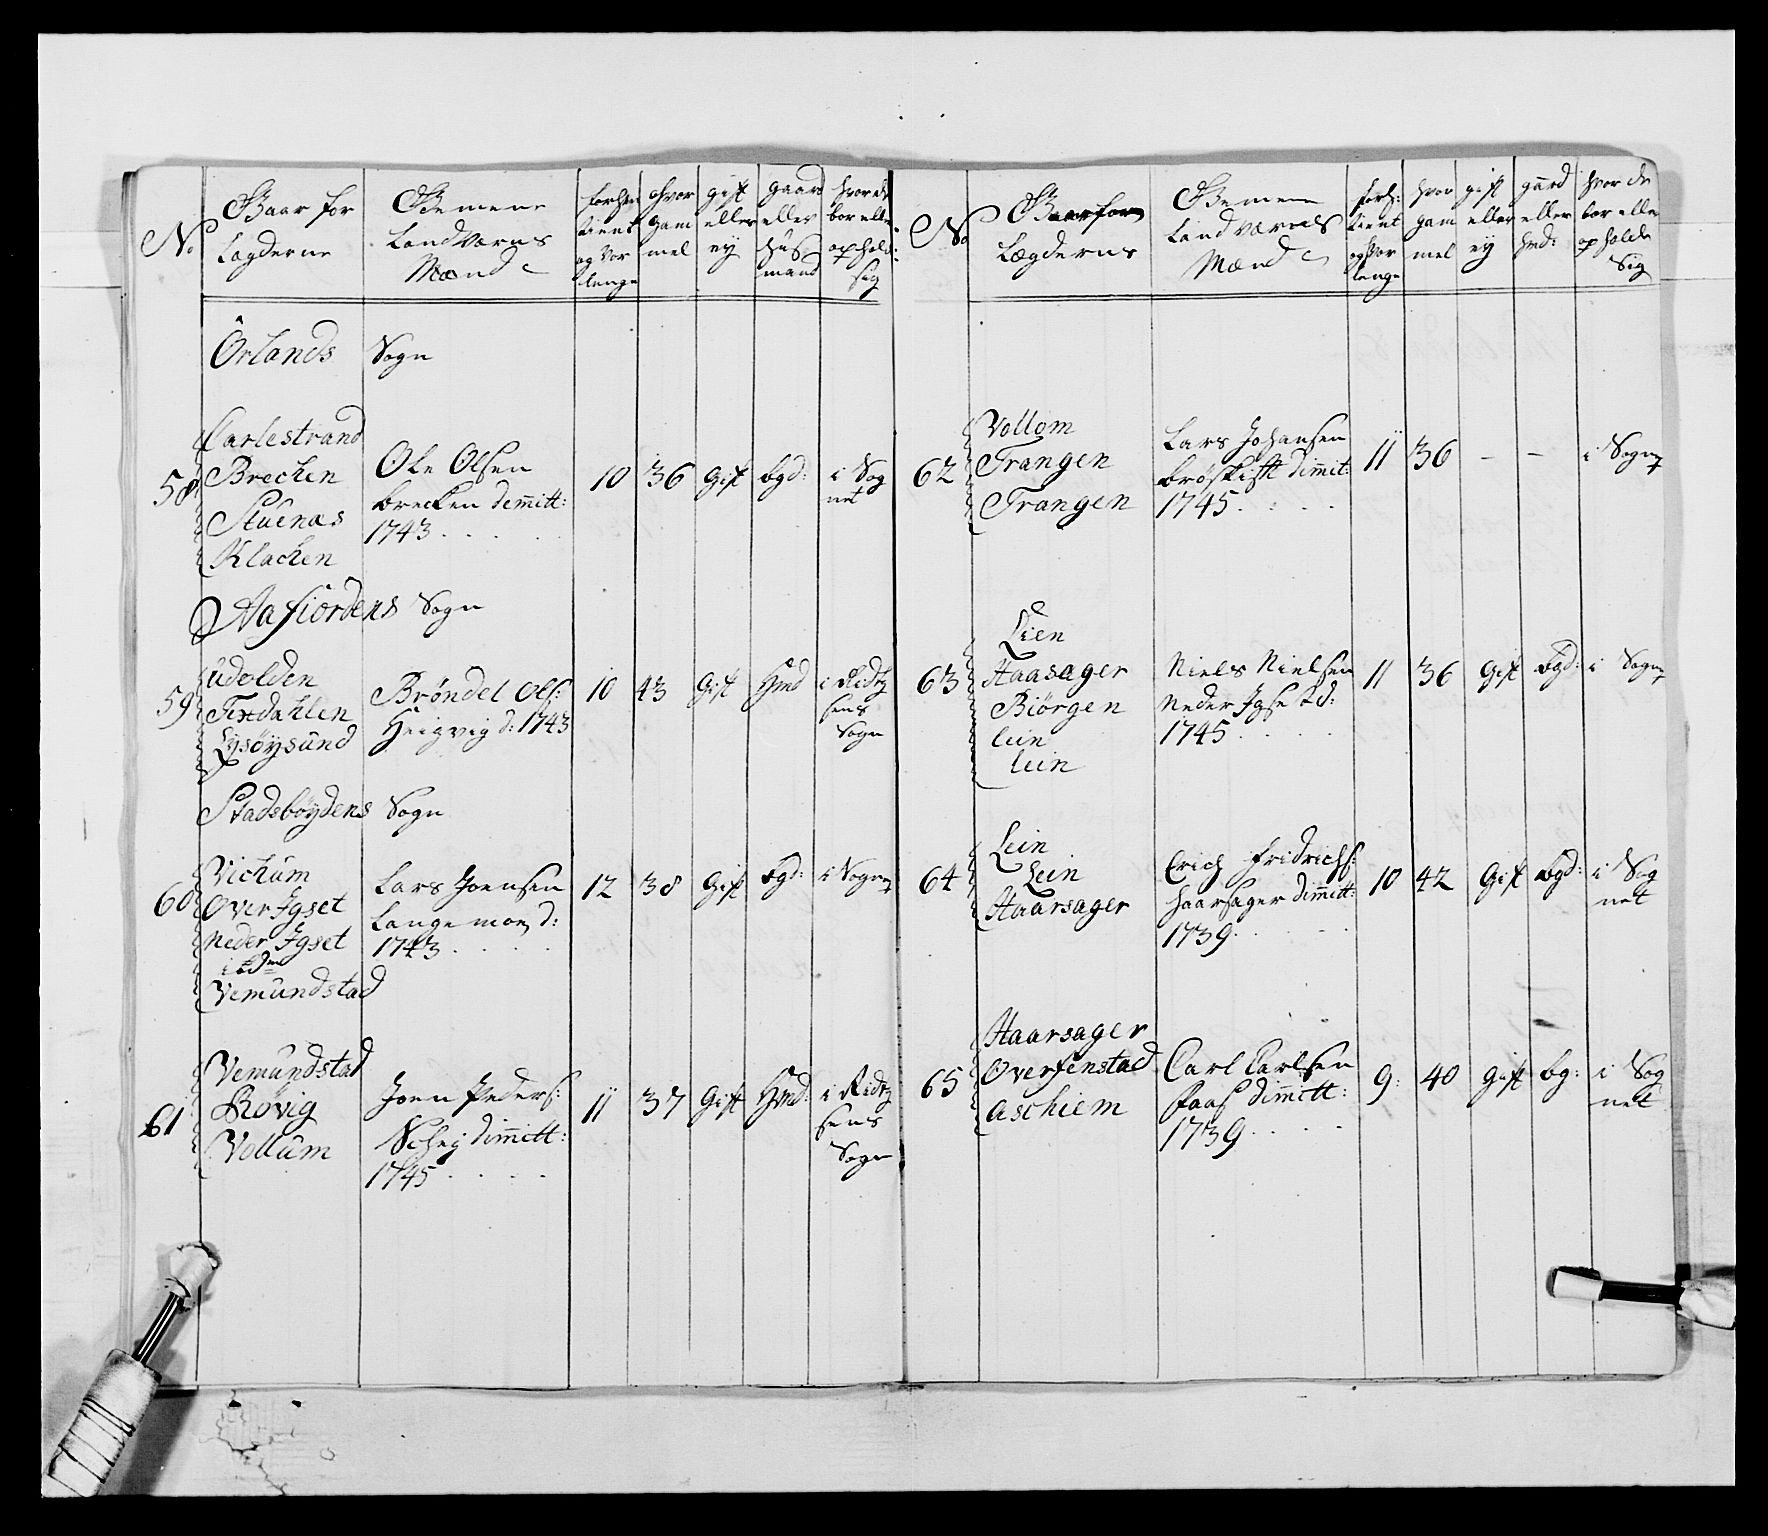 No
Gaar for
Lægderne
Gemene
LandVærns
Mænd
forhen
tient
og Vor
lenge
hvor
gam
mel
gift
eller
ey
gaard
eller
huus
mand
hvor de
bor eller
ophold:
sig
Ørlands Sogn
58
Carlestrand
Brechen
Stuenæs
Klachen
Ole Olsen
brecken demitt:
1743
10 36 gift bgd: i Sog
net
Aafiordens Sogn
59
udolden
Fixdahlen
Lysøysund
Brøndel Ols:
Heigvig d: 1743
10 43 gift Hmd i Ridtz
sens
Sogn
Stadsbøydens Sogn
60
Vichum
Over Igset
Neder Igset
ibdm
Vemundstad
Lars Joensen
Langemoen d:
1743
12 38 gift bgd: i Sogn
61
Vemundstad
Røvig
Vollum
Joen Peders:
Schey dimitt:
1745
11 37 gift Hmd: i Ridtz
sens
Sogn
No
Gaar for
Lægderns
Gemene
Landværns
Mænd
forh:
tient
og Vor
lenge
hvor
gam
mel
gift
eller
ey
gaard
eller
hmd:
hvor de
bor eller
opholde
Sig
62
Vollom
Trangen
Trangen
Lars Johansen
brøskift dimit:
1745
11 36 - - i Sogn
63
Lien
Haasager
Biörgen
Lein
Lein
Niels Nielsen
Neder Igset d:
1745
11 36 gift bgd: i Sogn
64
Lein
Lein
Haarsager
Erich Fridrichs:
haarsager dimitt:
1739
10 42 gift bgd: i Sog
net
65
Haarsager
Overfenstad
Aschiem
Carl Carlsen
faas dimitt:
1739
9: 40 gift bg: i Sog
net